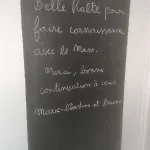 Belle halte pour
faire connaissance
avec le Mans.
Merci, bonne
continuation à vous
Marie-Christine et Bruno